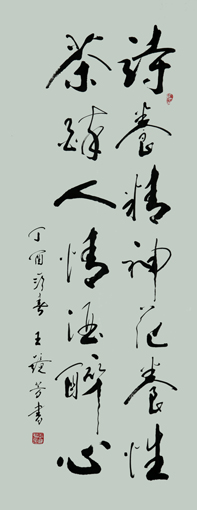 詩養精神花養性
茶醉人情酒醉心
丁酉初春王镜芳書